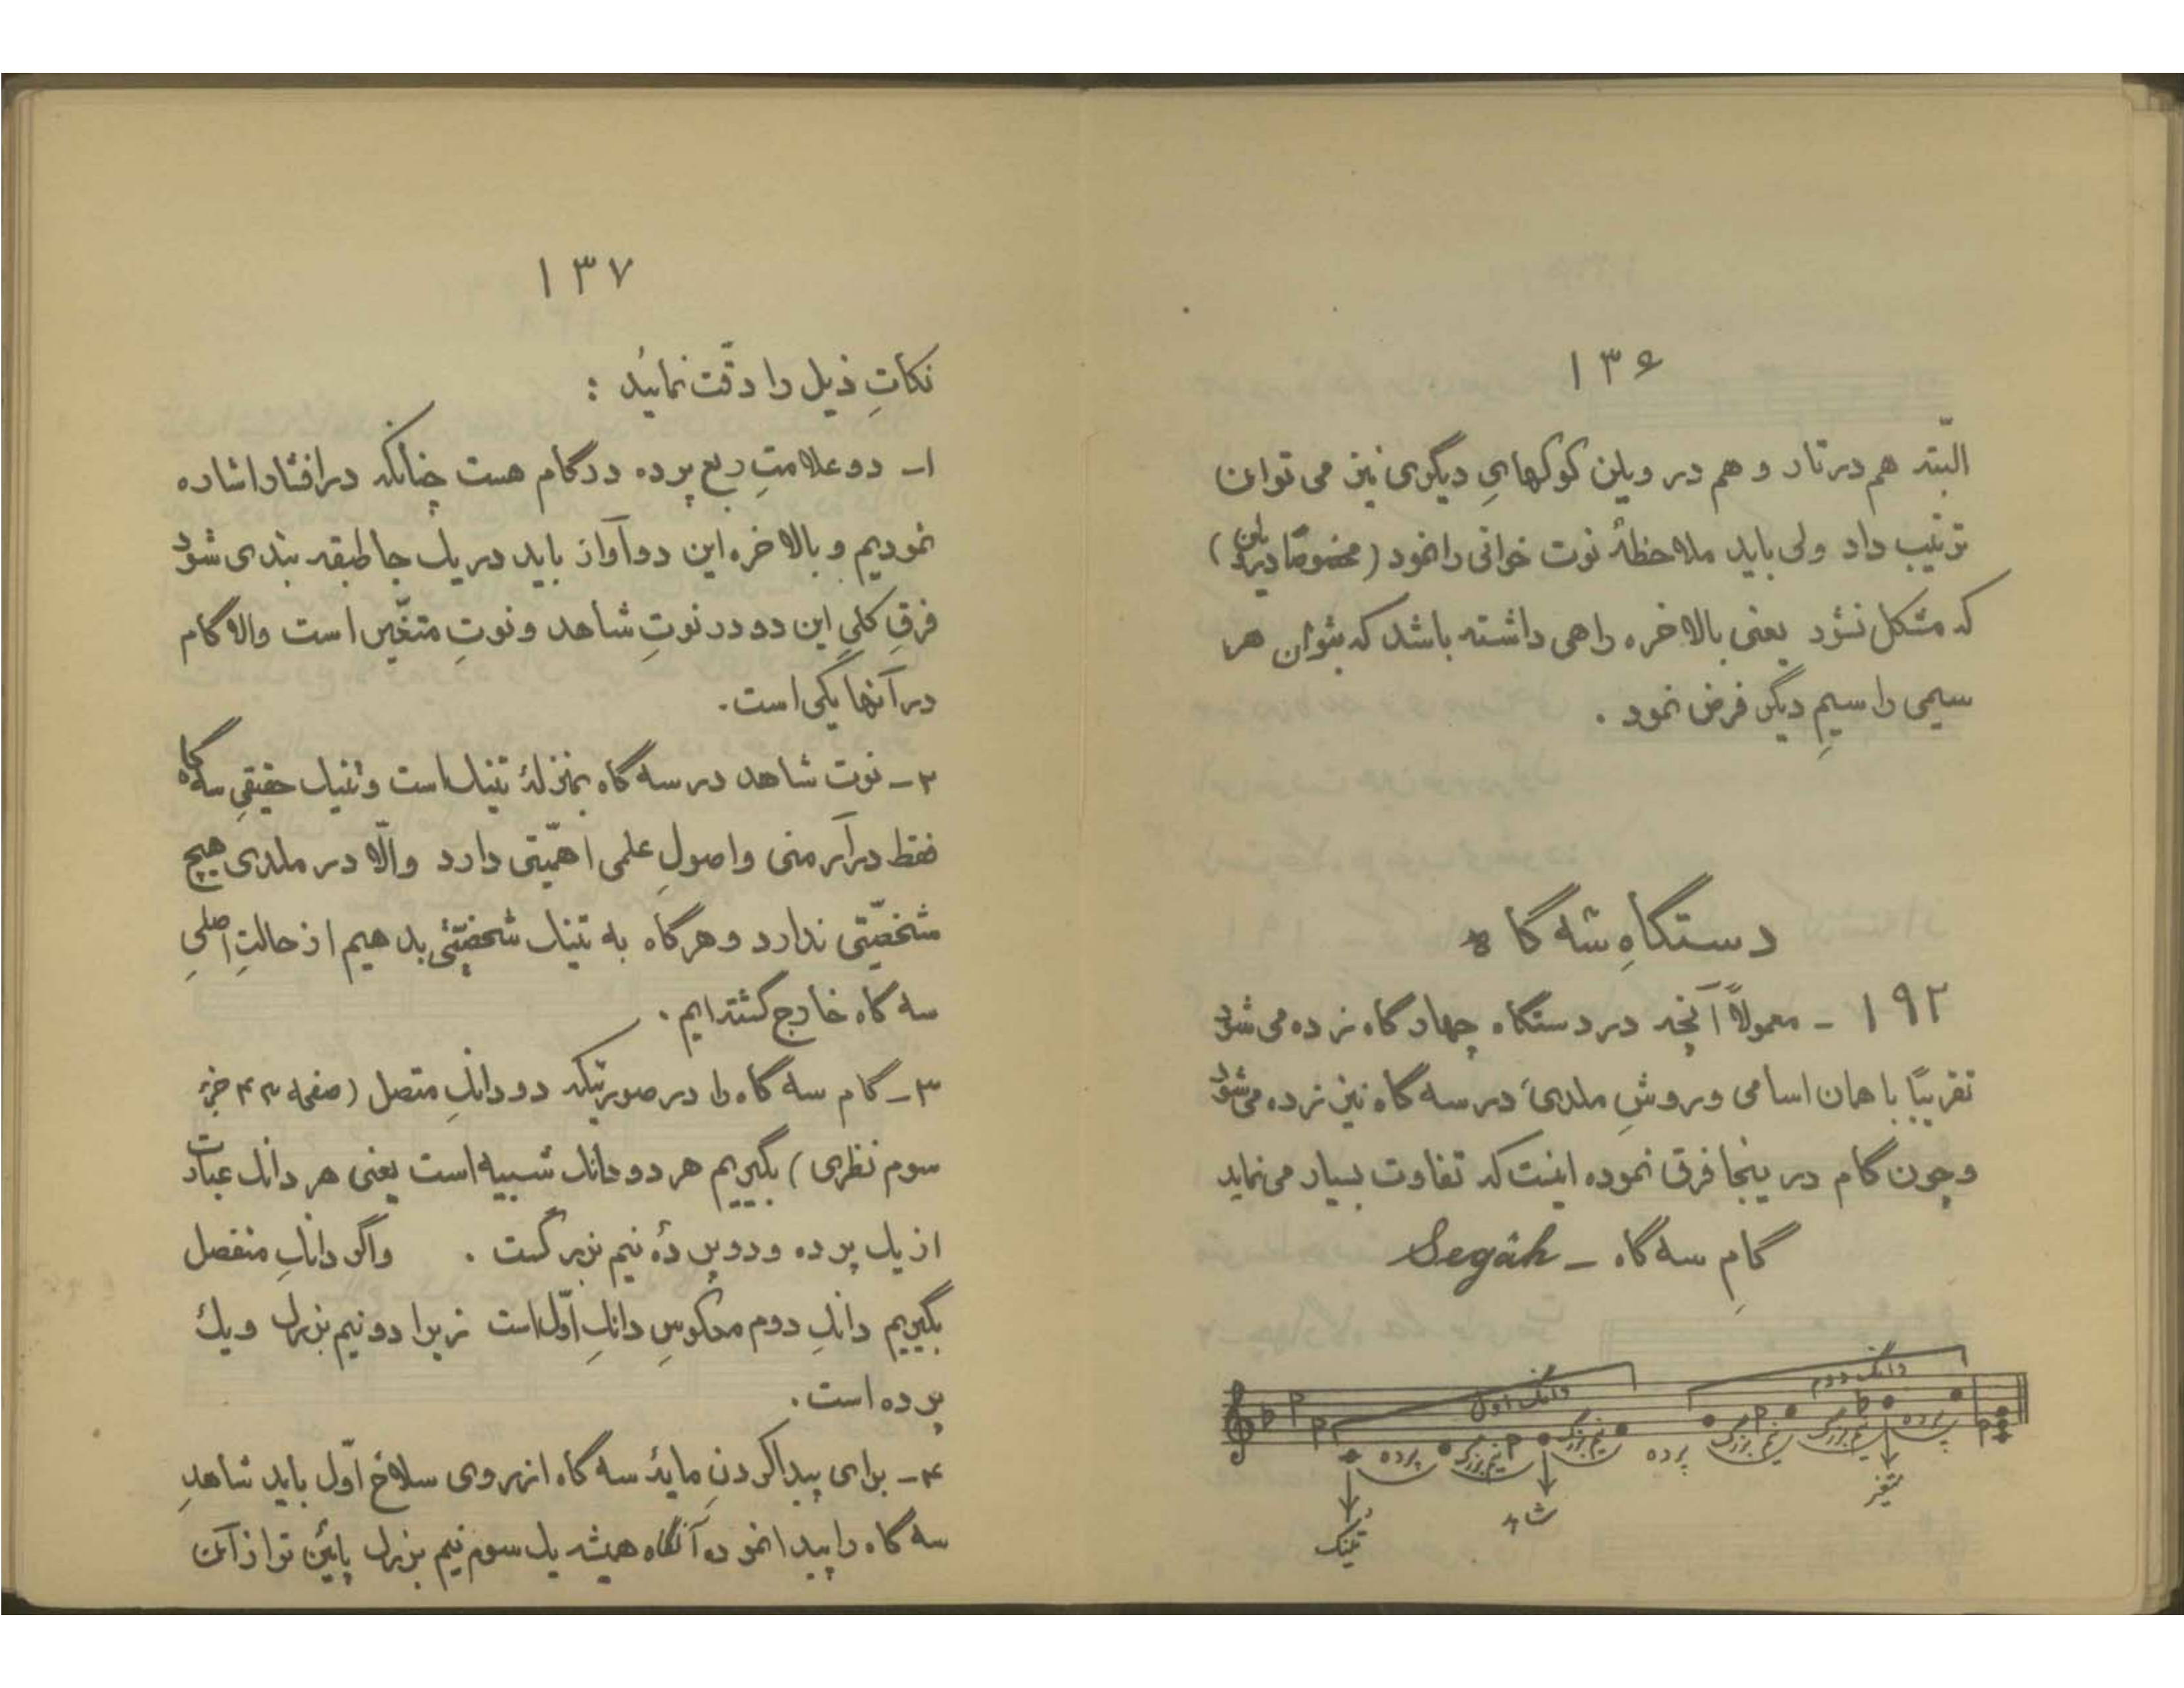 ۱۳۶
البتّه هم در تار و هم در ویلن کوکهایِ دیگری نیز می توان
ترتیب داد ولی باید ملاحظهٔ نوت خوانی را نمود (مخصوصاً در ویلن)
که مشکل نشود یعنی بالاخره راهی داشته باشد که بتوان هر
سیمی را سیمِ دیگر فرض نمود .
دستگاهِ سه گاه
۱۹۲ - معمولاً آنچه در دستگاه چهارگاه زده می شود
تقریباً با همان اسامی و روشِ ملدی در سه گاه نیز زده می شود
و چون گام در ینجا فرق نموده اینست که تفاوت بسیار می نماید
گامِ سه گاه - Segâh
دانگ اول دانگ دوم
پرده نیم بزرگ نیم بزرگ پرده نیم بزرگ نیم بزرگ پرده
تُنیک شاهد متغیر
۱۳۷
نکاتِ ذیل را دقّت نمائید :
۱- دو علامتِ ربع پرده در گام هست چنانکه در افشار اشاره
نمودیم و بالاخره این دو آواز باید در یک جا طبقه بندی شود
فرقِ کلیِ این دو در نوتِ شاهد و نوتِ متغّیر است والا گام
در آنها یکی است.
۲- نوت شاهد در سه گاه بمنزلهٔ تنیک است و تنیک حقیقیِ سه گاه
فقط در آرمنی و اصولِ علمی اهمّیتی دارد والّا در ملدی هیچ
شخصّیتی ندارد و هرگاه به تنیک شخصّیتی بدهیم از حالتِ اصلیِ
سه گاه خارج گشته ایم .
۳- گام سه گاه را در صورتیکه دو دانگِ متصل (صفحه ۴۳ جزء
سوم نظری) بگیریم هر دو دانگ شبیه است یعنی هر دانگ عبارت
از یک پرده و دو پردهٔ نیم بزرگست . واگر دانگِ منفصل
بگیریم دانگِ دوم معکوسِ دانگِ اوّل است زیرا دو نیم بزرگ و یک
پرده است.
۴- برای پیدا کردنِ مایهٔ سه گاه از روی سلاح اوّل باید شاهدِ
سه گاه را پیدا نموده آنگاه همیشه یک سوم نیم بزرگ پائین تر از آن